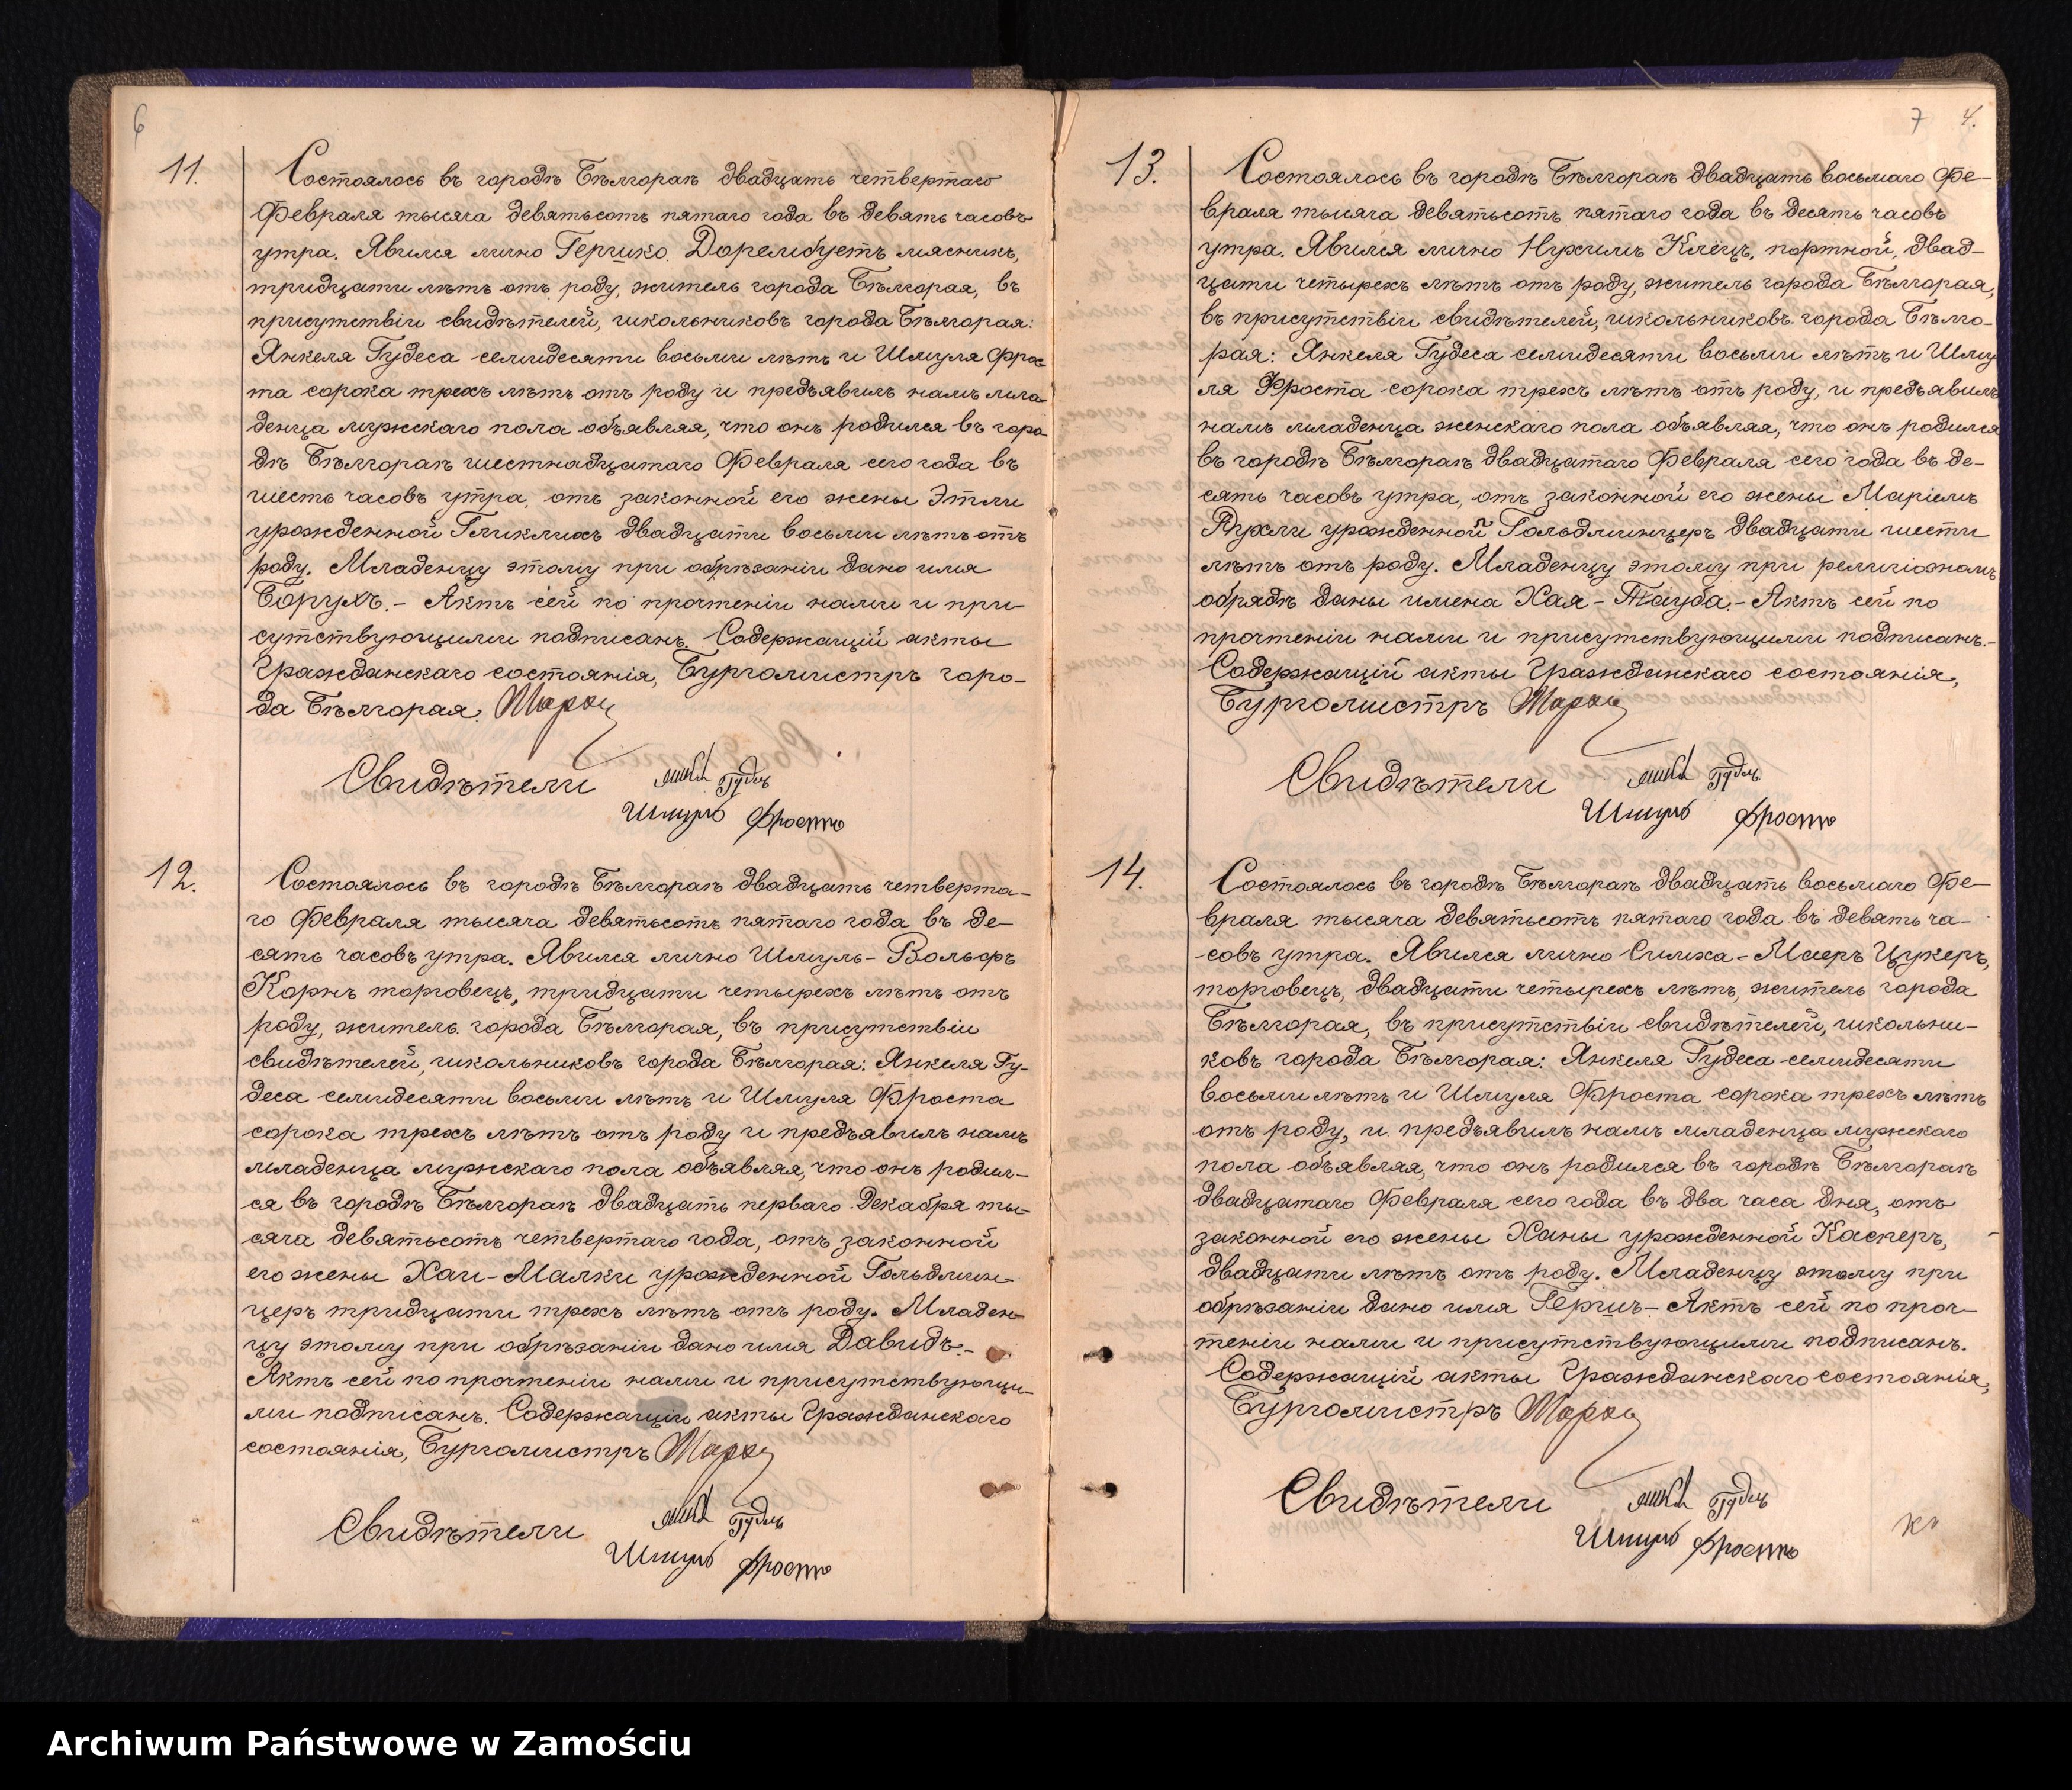 6
11.
Состоялось въ городѣ Бѣлгораѣ двадцать четвертаго
Февраля тысяча девятьсотъ пятаго года въ девять часовъ
утра. Явился лично Гершко Дорелибуетъ мясникъ,
тридцати лѣтъ отъ роду, житель города Бѣлгорая, въ
присутствіи свидѣтелей, школьниковъ города Бѣлгорая:
Янкеля Гудеса семидесяти восьми лѣтъ и Шмуля Фрос-
та сорока трехъ лѣтъ отъ роду и предъявилъ намъ мла-
денца мужскаго пола объявляя, что онъ родился въ горо-
дѣ Бѣлгораѣ шестнадцатаго Февраля сего года въ
шесть часовъ утра, отъ законной его жены Этли
урожденной Гликлихъ двадцати восьми лѣтъ отъ
роду. Младенцу этому при обрѣзаніи дано имя
Борухъ.- Актъ сей по прочтеніи нами и при-
сутствующими подписанъ. Содержащій акты
Гражданскаго состоянія, Бургомистръ горо-
да Бѣлгорая.
Свидѣтели
Гудесъ
Шмуль Фростъ
12.
Состоялось въ городѣ Бѣлгораѣ двадцать четверта-
го Февраля тысяча девятьсотъ пятаго года въ де-
сять часовъ утра. Явился лично Шмуль-Вольфъ
Корнъ торговецъ, тридцати четырехъ лѣтъ отъ
роду, житель города Бѣлгорая, въ присутствіи
свидѣтелей, школьниковъ города Бѣлгорая: Янкеля Гу-
деса семидесяти восьми лѣтъ и Шмуля Фроста
сорока трехъ лѣтъ отъ роду и предъявилъ намъ
младенца мужскаго пола объявляя, что онъ родил-
ся въ городѣ Бѣлгораѣ двадцать перваго Декабря ты-
сяча девятьсотъ четвертаго года, отъ законной
его жены Хаи-Малки урожденной Гольдмин-
церъ тридцати трехъ лѣтъ отъ роду. Младен-
цу этому при обрѣзаніи дано имя Давидъ.-
Актъ сей по прочтеніи нами и присутствующи-
ми подписанъ. Содержащій акты Гражданскаго
состоянія, Бургомистръ
Свидѣтели
Гудесъ
Шмуль Фростъ
7 4.
13.
Состоялось въ городѣ Бѣлгораѣ двадцать восьмаго Фе-
враля тысяча девятьсотъ пятаго года въ десять часовъ
утра. Явился лично Нухимъ Клецъ, портной, двад-
цати четырехъ лѣтъ отъ роду, житель города Бѣлгорая,
въ присутствіи свидѣтелей, школьниковъ города Бѣлго-
рая: Янкеля Гудеса семидесяти восьми лѣтъ и Шму
ля Фроста сорока трехъ лѣтъ отъ роду, и предъявилъ
намъ младенца женскаго пола объявляя, что онъ родился
въ городѣ Бѣлгораѣ двадцатаго Февраля сего года въ де-
сять часовъ утра, отъ законной его жены Маріемъ
Рухли урожденной Гольдминцеръ двадцати шести
лѣтъ отъ роду. Младенцу этому при религіозномъ
обрядѣ даны имена Хая-Тауба.- Актъ сей по
прочтеніи нами и присутствующими подписанъ.-
Содержащій акты Гражданскаго состоянія,
Бургомистръ
Свидѣтели
Гудесъ
Шмуль Фростъ
14.
Состоялось въ городѣ Бѣлгораѣ двадцать восьмаго Фе-
враля тысяча девятьсотъ пятаго года въ девять ча-
совъ утра. Явился лично Симха-Маеръ Цукеръ,
торговецъ, двадцати четырехъ лѣтъ, житель города
Бѣлгорая, въ присутствіи свидѣтелей, школьни-
ковъ города Бѣлгорая: Янкеля Гудеса семидесяти
восьми лѣтъ и Шмуля Фроста сорока трехъ лѣтъ
отъ роду, и предъявилъ намъ младенца мужскаго
пола объявляя, что онъ родился въ городѣ Бѣлгораѣ
двадцатаго Февраля сего года въ два часа дня, отъ
законной его жены Ханы урожденной Каснеръ,
двадцати лѣтъ отъ роду. Младенцу этому при
обрѣзаніи дано имя Гершъ- Актъ сей по проч-
теніи нами и присутствующими подписанъ.
Содержащій акты Гражданскаго состоянія,
Бургомистръ
Свидѣтели
Гудесъ
Шмуль Фростъ
Archiwum Państwowe w Zamościu